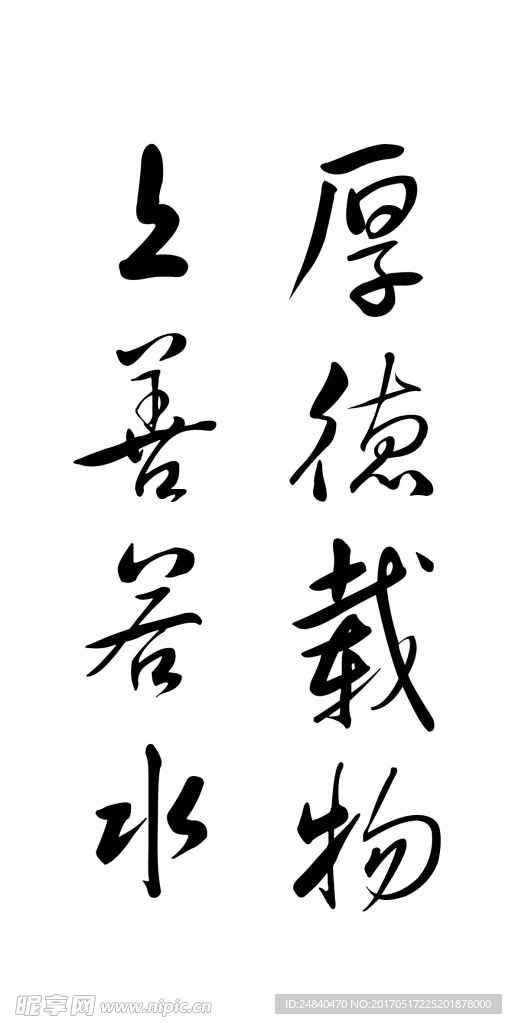 厚德载物
上善若水
昵享网 www.nipic.cn
ID:24840470 NO:20170517225201878000